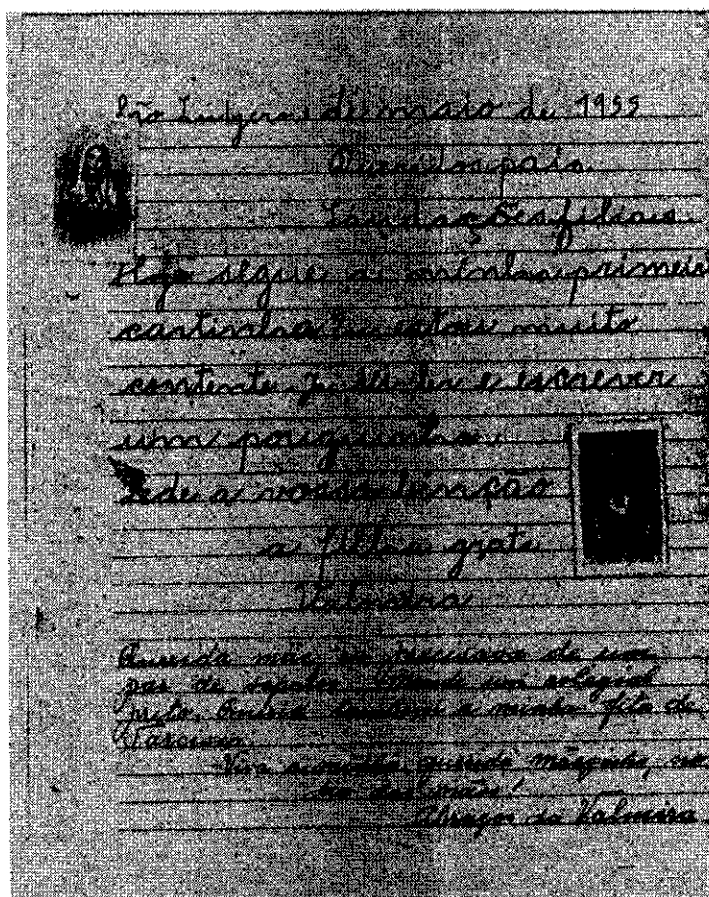 São Ludgero, de maio de 1955
Queridos pais
Saudações filiais.
Hoje segue a minha primeir
cartinha. Eu estou muito
contente. Já sei ler e escrever
um pouquinho.
Pede a vossa bênção
a filha grata
Valmira
Querida mãe, eu precisava de um
par de sapatos colegial
preto. Queria também a minha fita de
Viva minha querida mãezinha, no
dia das mães!
Abraços da Valmira